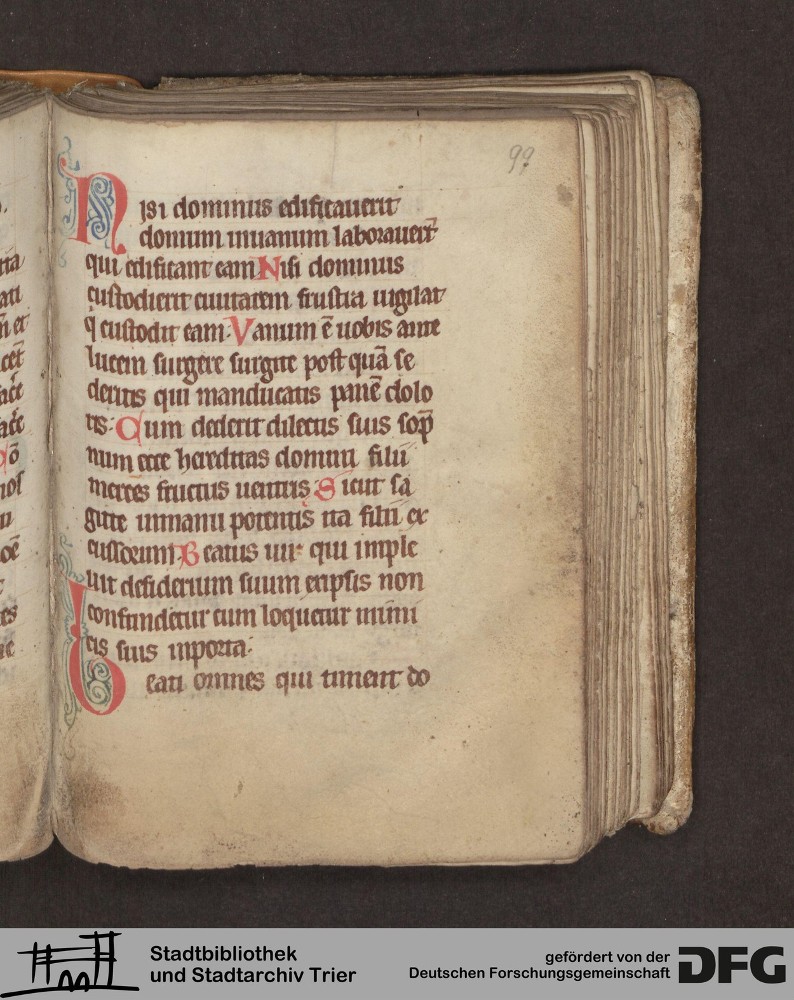 99
Nisi dominus edificauerit
domum inuanum laborauer̄t
qui edificant eam Nisi dominus
custodierit ciuitatem frustra uigilat
q̇ custodit eam· Vanum ē uobis ante
lucem surgere surgite post quā se
deritis qui manducatis panē dolo
ris· Cum dederit dilectis suis sop̄
num ecce hereditas domini filii
merces fructus uentris Sicut sa
gitte inmanu potentis ita filii ex
cussorum Beatus uir qui imple
uit desiderium suum exipsis non
confundetur cum loquetur inimi
cis suis inporta·
Beati omnes qui timent do
Stadtbibliothek
und Stadtarchiv Trier
gefördert von der
Deutschen Forschungsgemeinschaft
DFG